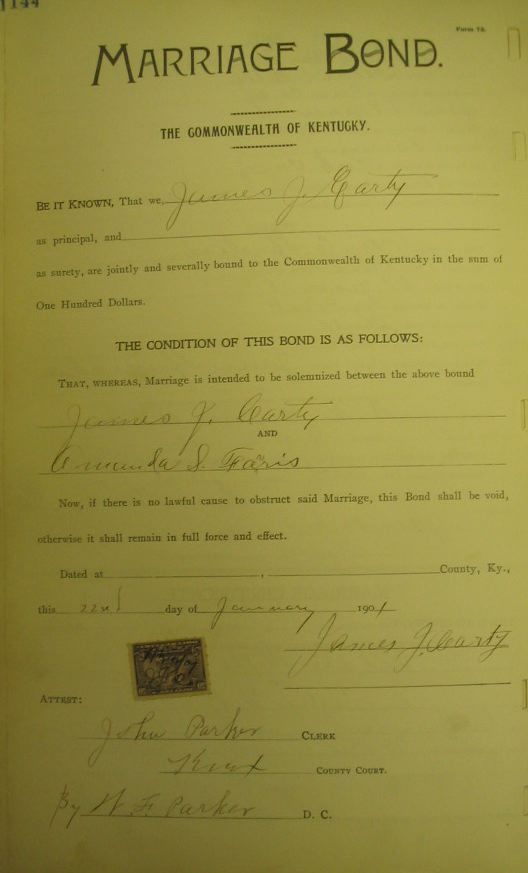 1144
Form 78.
MARRIAGE BOND.
THE COMMONWEALTH OF KENTUCKY.
BE IT KNOWN, That we, James J. Carty
as principal, and
as surety, are jointly and severally bound to the Commonwealth of Kentucky in the sum of
One Hundred Dollars.
THE CONDITION OF THIS BOND IS AS FOLLOWS:
THAT, WHEREAS, Marriage is intended to be solemnized between the above bound
James J. Carty
AND
Amanda S. Faris
Now, if there is no lawful cause to obstruct said Marriage, this Bond shall be void,
otherwise it shall remain in full force and effect.
Dated at , County, Ky.,
this day of January 1901
James J. Carty
ATTEST:
John Parker CLERK
Knox COUNTY COURT.
By W F Parker D. C.